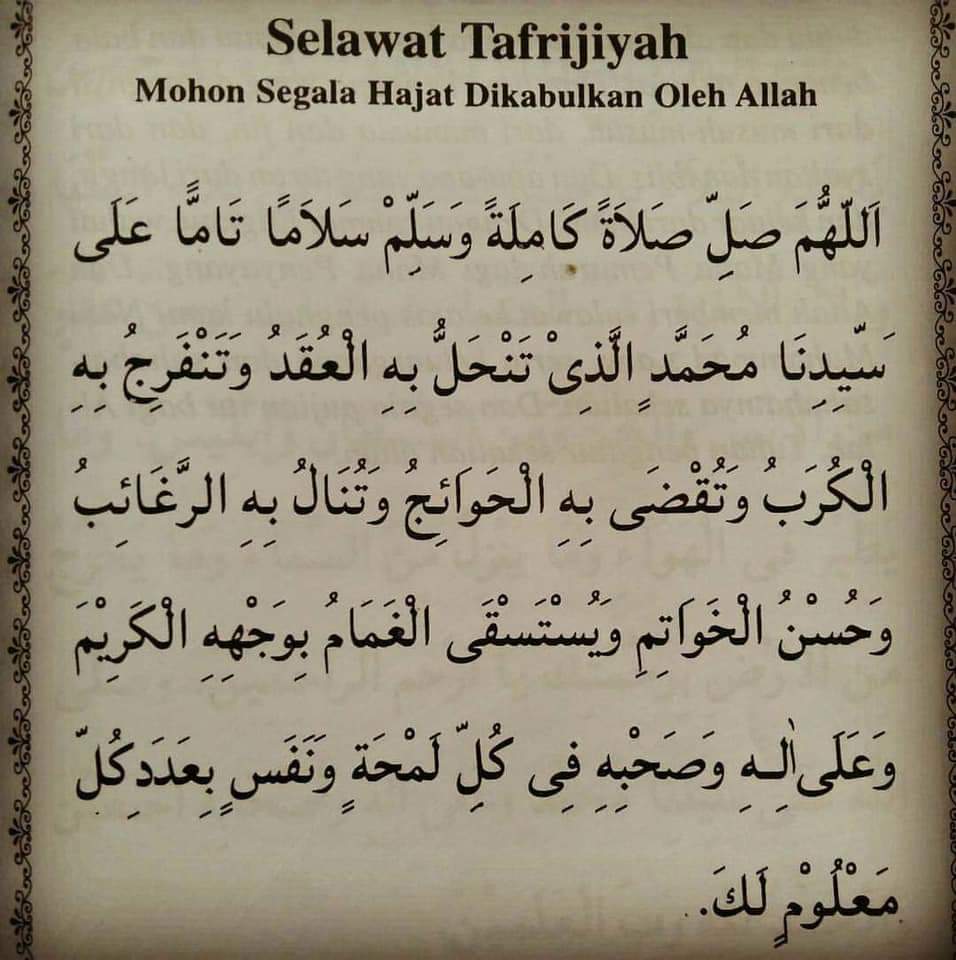 Selawat Tafrijiyah
Mohon Segala Hajat Dikabulkan Oleh Allah
اَللّٰهُمَّ صَلِّ صَلَاةً كَامِلَةً وَسَلِّمْ سَلَامًا تَامًّا عَلَى
سَيِّدِنَا مُحَمَّدٍ الَّذِىْ تَنْحَلُّ بِهِ الْعُقَدُ وَتَنْفَرِجُ بِهِ
الْكُرَبُ وَتُقْضَى بِهِ الْحَوَائِجُ وَتُنَالُ بِهِ الرَّغَائِبُ
وَحُسْنُ الْخَوَاتِمِ وَيُسْتَسْقَى الْغَمَامُ بِوَجْهِهِ الْكَرِيْمَ
وَعَلَى اٰلِهِ وَصَحْبِهِ فِى كُلِّ لَمْحَةٍ وَنَفَسٍ بِعَدَدِ كُلِّ
مَعْلُوْمٍ لَكَ.